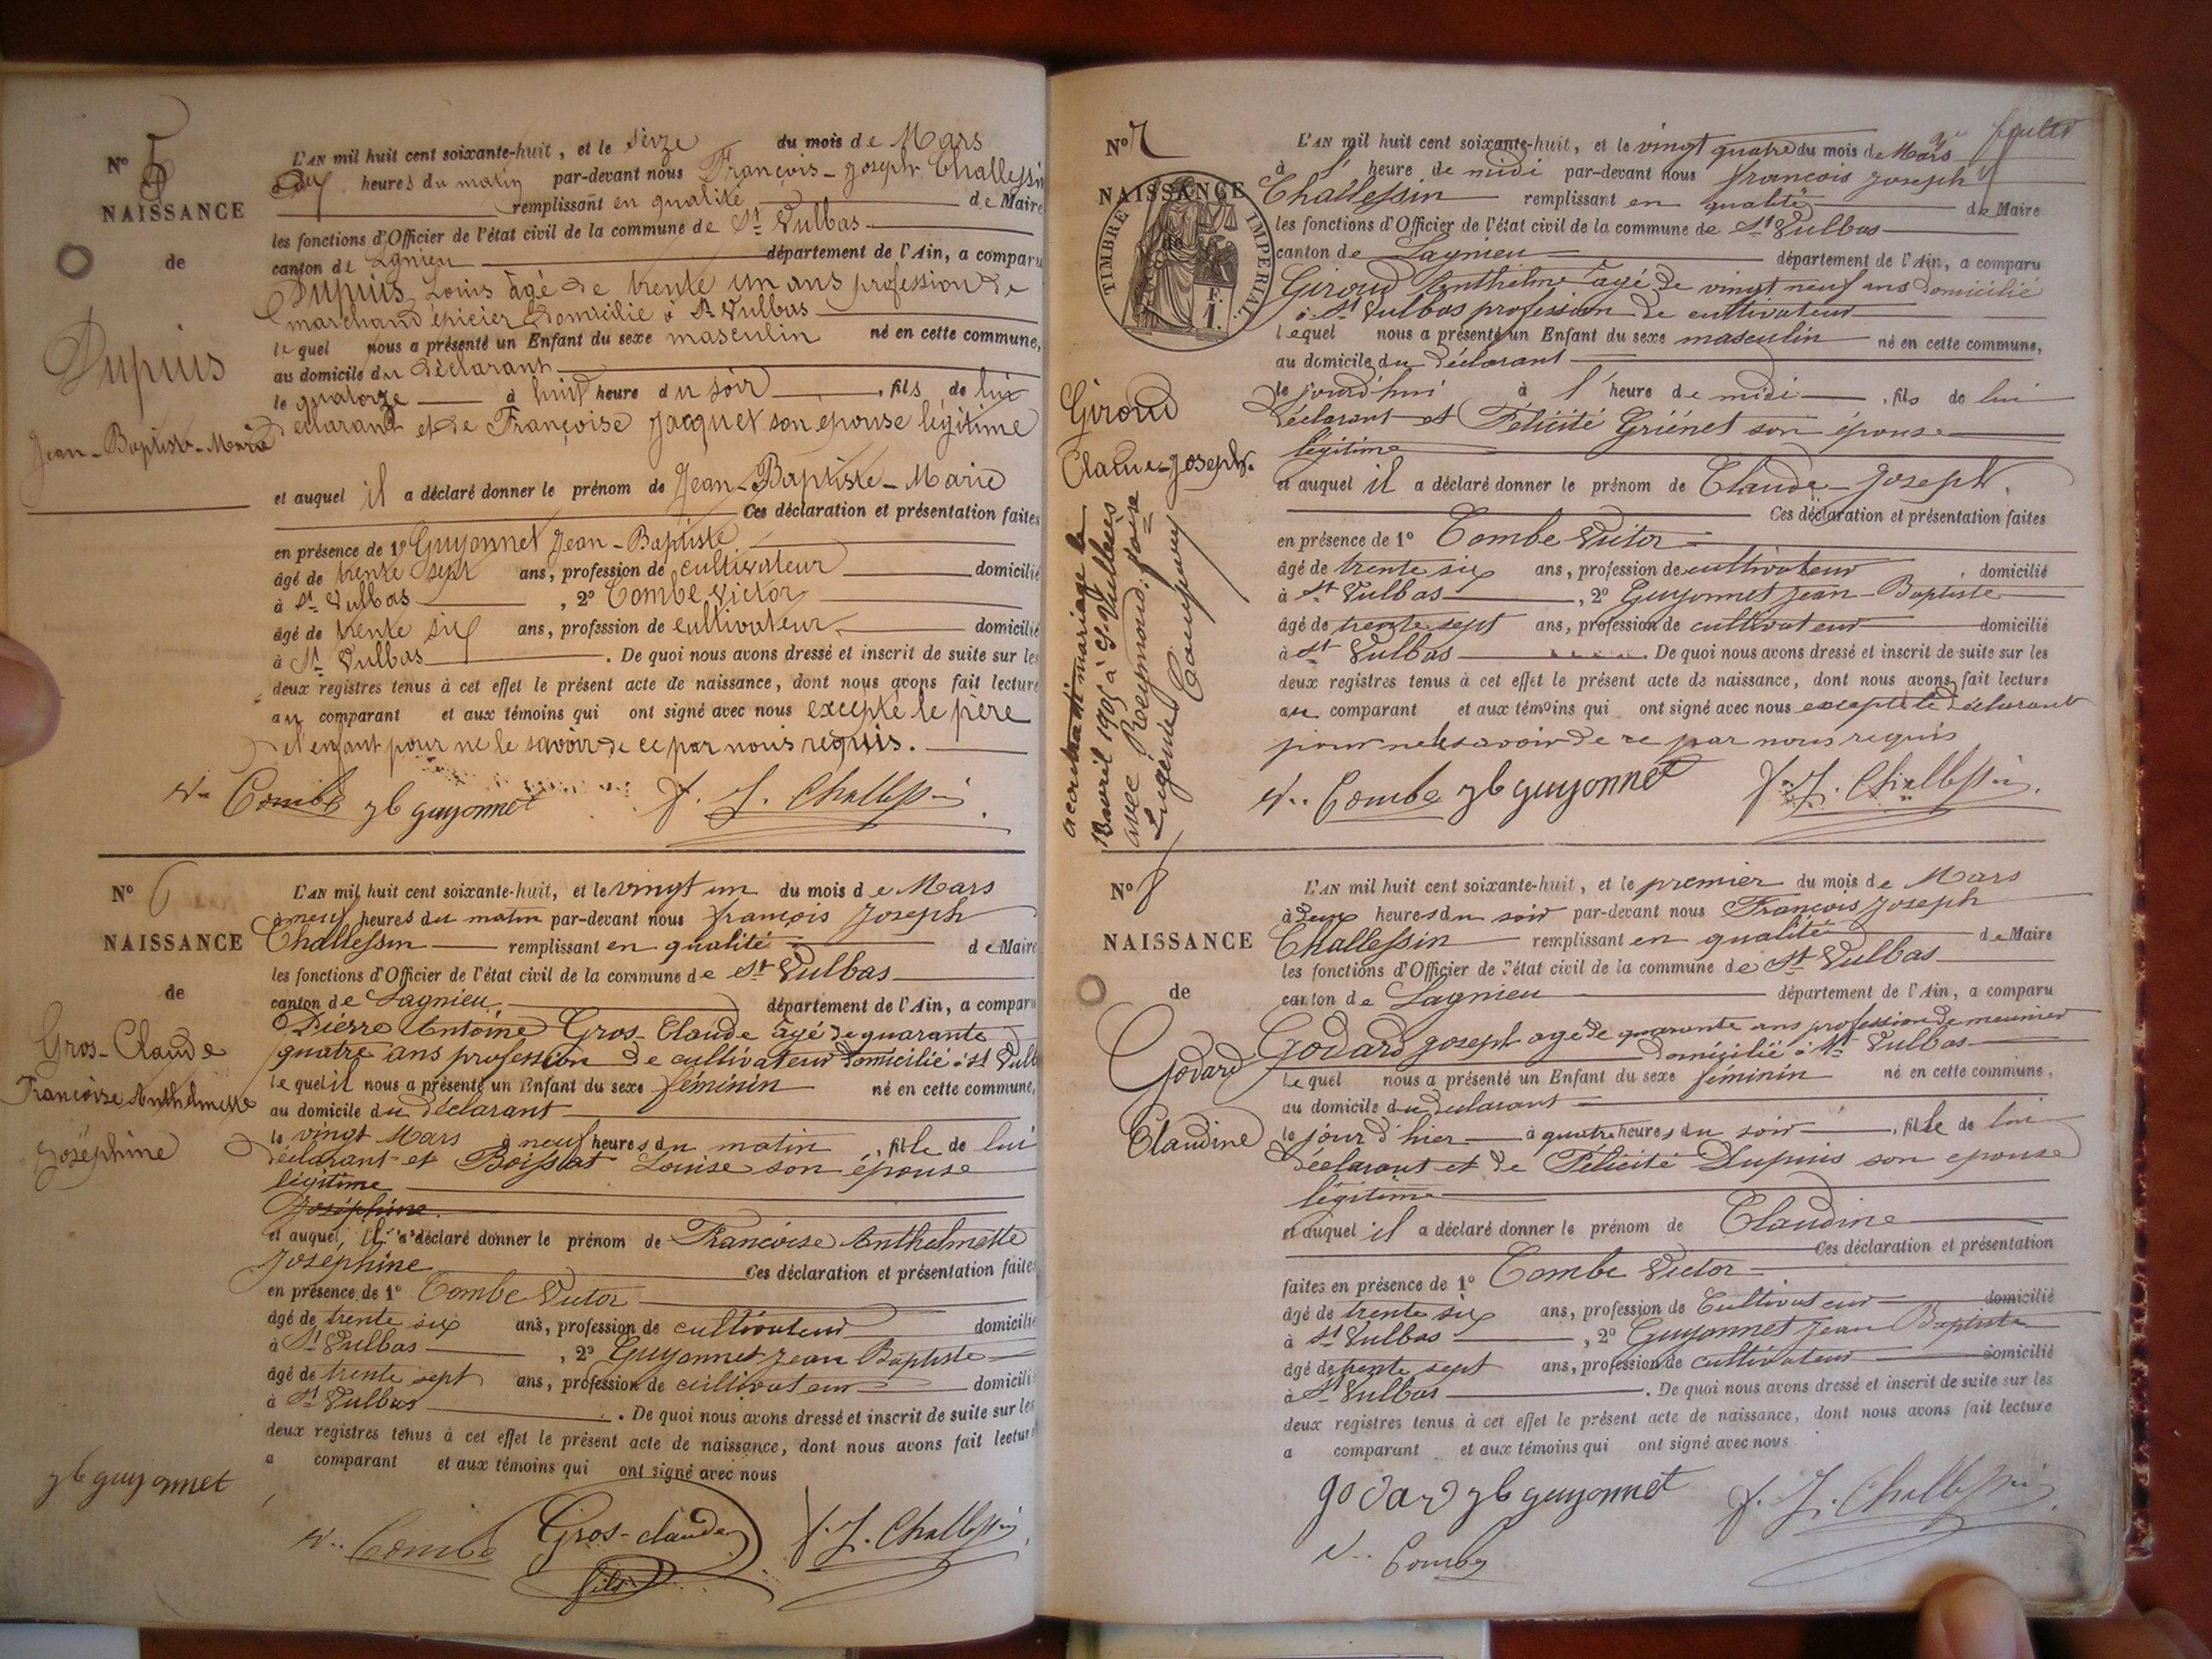 N° 5
NAISSANCE
de
Dupuis
Jean-Baptiste-Marie
L'AN mil huit cent soixante-huit, et le sèize du mois de Mars
à dix heures du matin par-devant nous François-Joseph Challessin
remplissant en qualité de Maire
les fonctions d'Officier de l'état civil de la commune de St Vulbas
canton de Lgnieu département de l'Ain, a comparu
Dupuis Louis âgé de trente un ans profession de
marchand épicier domicilié à St Vulbas
lequel nous a présenté un Enfant du sexe masculin né en cette commune,
au domicile du déclarant
le quatorze à huit heure du soir, fils de lui
déclarant et de Françoise Jacquet son épouse légitime
et auquel il a déclaré donner le prénom de Jean-Baptiste-Marie
Ces déclaration et présentation faites
en présence de 1° Guyonnet Jean-Baptiste
âgé de trente sept ans, profession de cultivateur domicilié
à St Vulbas, 2° Combe Victor
âgé de trente six ans, profession de cultivateur domicilié
à St Vulbas. De quoi nous avons dressé et inscrit de suite sur les
deux registres tenus à cet effet le présent acte de naissance, dont nous avons fait lecture
au comparant et aux témoins qui ont signé avec nous excepté le père
de l'enfant pour ne le savoir de ce par nous requis.
V. Combe jb guyonnet f. J. Challessin
N° 6
NAISSANCE
de
Gros-Claude
Francoise Anthelmette
Joséphine
L'AN mil huit cent soixante-huit, et le vingt un du mois de Mars
à neuf heures du matin par-devant nous françois Joseph
Challessin remplissant en qualité de Maire
les fonctions d'Officier de l'état civil de la commune de St Vulbas
canton de Lagnieu département de l'Ain, a comparu
Pierre Antoine Gros-Claude âgé de quarante
quatre ans profession de cultivateur domicilié à St Vulb
lequel il nous a présenté un Enfant du sexe féminin né en cette commune,
au domicile du déclarant
le vingt Mars à neuf heures du matin, fille de lui
déclarant et Boissat Louise son épouse
légitime
Joséphine
et auquel, il a déclaré donner le prénom de Francoise Anthelmette
Joséphine Ces déclaration et présentation faites
en présence de 1° Combe Victor
âgé de trente six ans, profession de cultivateur domicilié
à St Vulbas, 2° Guyonnet Jean Baptiste
âgé de trente sept ans, profession de cultivateur domicilié
à St Vulbas. De quoi nous avons dressé et inscrit de suite sur les
deux registres tenus à cet effet le présent acte de naissance, dont nous avons fait lecture
a comparant et aux témoins qui ont signé avec nous
jb guyonnet
V. Combe Gros-claude f. J. Challessin
fils
N° 7
NAISSANCE
de
TIMBRE IMPÉRIAL
F.
1.
Giroud
Claude-Joseph.
a contracté mariage le
avril 1905 à St Vulbas
avec Reymond,
Eugénie
L'AN mil huit cent soixante-huit, et le vingt quatre du mois de Mars
à 1 heure de midi par-devant nous francois Joseph
Challessin remplissant en qualité de Maire
les fonctions d'Officier de l'état civil de la commune de St Vulbas
canton de Lagnieu département de l'Ain, a comparu
Giroud Anthelme âgé de vingt neuf ans domicilié
à St Vulbas profession de cultivateur
lequel nous a présenté un Enfant du sexe masculin né en cette commune,
au domicile du déclarant
le jourd'hui à 1 heure de midi, fils de lui
déclarant et Félicité Griénet son épouse
légitime
et auquel il a déclaré donner le prénom de Claude-Joseph.
Ces déclaration et présentation faites
en présence de 1° Combe Victor
âgé de trente six ans, profession de cultivateur, domicilié
à St Vulbas, 2° Guyonnet Jean-Baptiste
âgé de trente sept ans, profession de cultivateur domicilié
à St Vulbas. De quoi nous avons dressé et inscrit de suite sur les
deux registres tenus à cet effet le présent acte de naissance, dont nous avons fait lecture
au comparant et aux témoins qui ont signé avec nous excepté le déclarant
pour ne le savoir de ce par nous requis
V. Combe jb guyonnet f. J. Challessin.
N° 8
NAISSANCE
de
Godard
Claudine
L'AN mil huit cent soixante-huit, et le premier du mois de Mars
à deux heures du soir par-devant nous François Joseph
Challessin remplissant en qualité de Maire
les fonctions d'Officier de l'état civil de la commune de St Vulbas
canton de Lagnieu département de l'Ain, a comparu
Godard Joseph age de quarante ans profession de meunier
domicilié à St Vulbas
lequel nous a présenté un Enfant du sexe féminin né en cette commune,
au domicile du declarant
le jour d'hier à quatre heures du soir, fille de lui
déclarant et de Félicité Dupuis son epouse
légitime
et auquel il a déclaré donner le prénom de Claudine
Ces déclaration et présentation
faites en présence de 1° Combe Victor
âgé de trente six ans, profession de Cultivateur domicilié
à St Vulbas, 2° Guyonnet Jean Baptiste
âgé de trente sept ans, profession de cultivateur domicilié
à St Vulbas. De quoi nous avons dressé et inscrit de suite sur les
deux registres tenus à cet effet le présent acte de naissance, dont nous avons fait lecture
a comparant et aux témoins qui ont signé avec nous
godard jb guyonnet f. J. Challessin
V. Combe